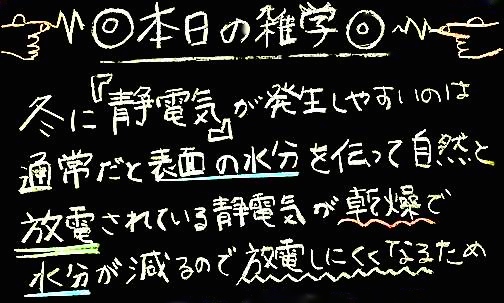 ◎本日の雑学◎
冬に『静電気』が発生しやすいのは
通常だと表面の水分を伝って自然と
放電されている静電気が乾燥で
水分が減るので放電しにくくなるため